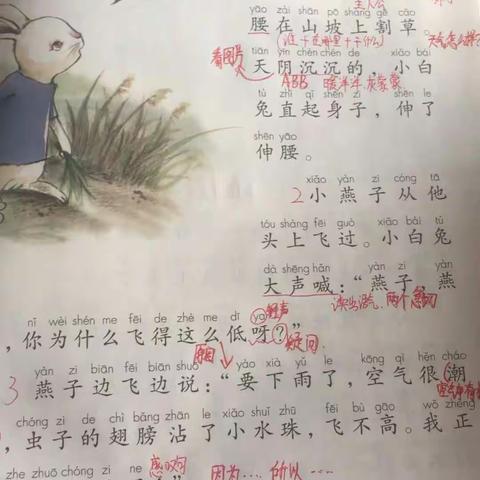 主人公
yāo zài shān pō shàng gē cǎo
腰在山坡上割草。
(谁+在哪里+干什么)
tiān yīn chén chén de xiǎo bái
天阴沉沉的，小白
ABB 暖洋洋 灰蒙蒙
tù zhí qǐ shēn zi shēn le
兔直起身子，伸了
shēn yāo
伸腰。
xiǎo yàn zi cóng tā
2小燕子从他
tóu shàng fēi guò xiǎo bái tù
头上飞过。小白兔
dà shēng hǎn yàn zi yàn
大声喊：“燕子，燕
nǐ wèi shén me fēi de zhè me dī ya 轻声
，你为什么飞得这么低呀？”
疑问
yàn zi biān fēi biān shuō yào xià yǔ le kōng qì hěn cháo
3 燕子边飞边说：“要下雨了，空气很潮
chóng zi de chì bǎng zhān le xiǎo shuǐ zhū fēi bù gāo wǒ zhèng
，虫子的翅膀沾了小水珠，飞不高。我正
zhe zhuō chóng zi ne
因为.... 所以....